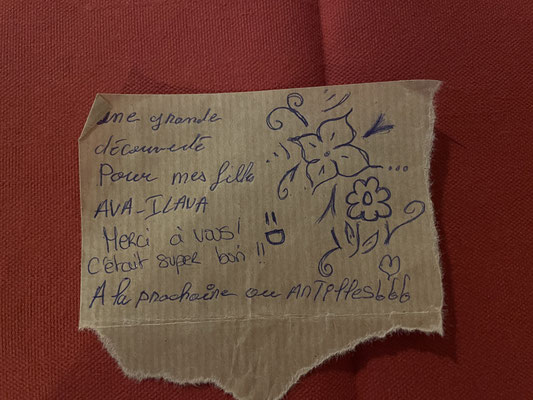 une grande
découverte
Pour mes fille
AVA-ILAVA
Merci à vous!
C'était super bon !! =D
A la prochaine ou